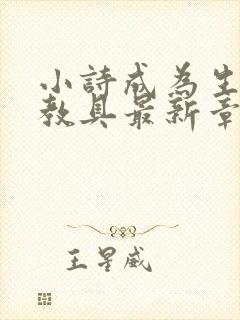 小詩成為生
教具最新章
王星威